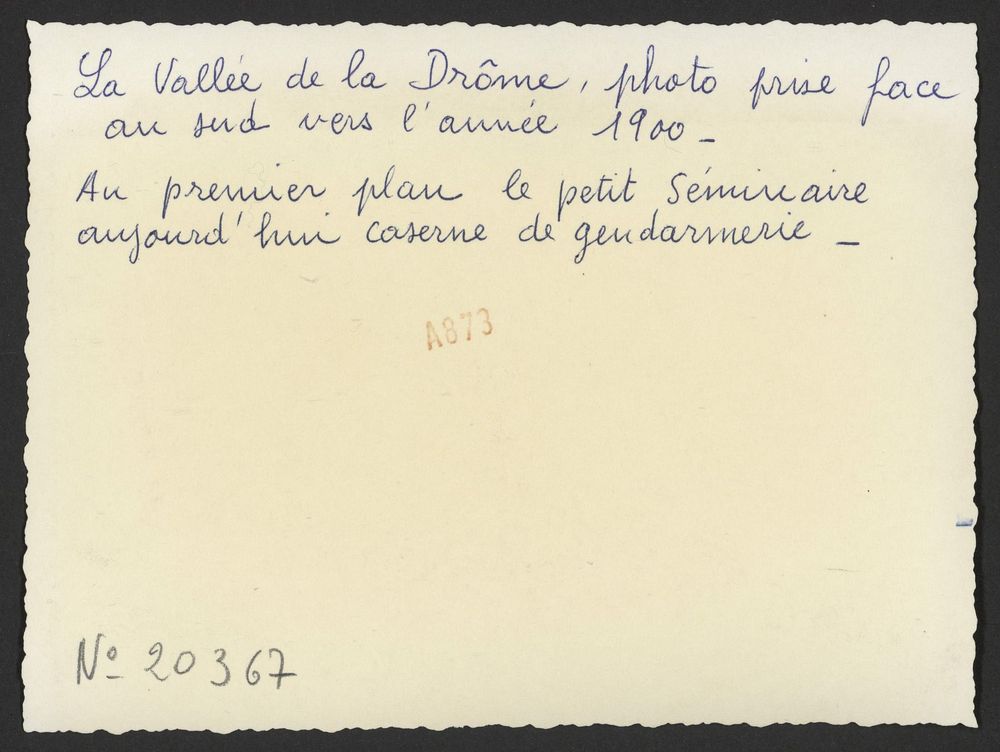 La Vallée de la Drôme, photo prise face
au sud vers l'année 1900 _
Au premier plan le petit Séminaire
aujourd'hui caserne de gendarmerie _
A873
Nº 20367